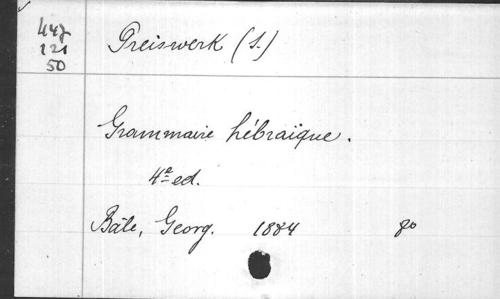 447
121
50
Preiswerk (S.)
Grammaire hébraïque.
4e ed.
Bâle, Georg. 1884 8o